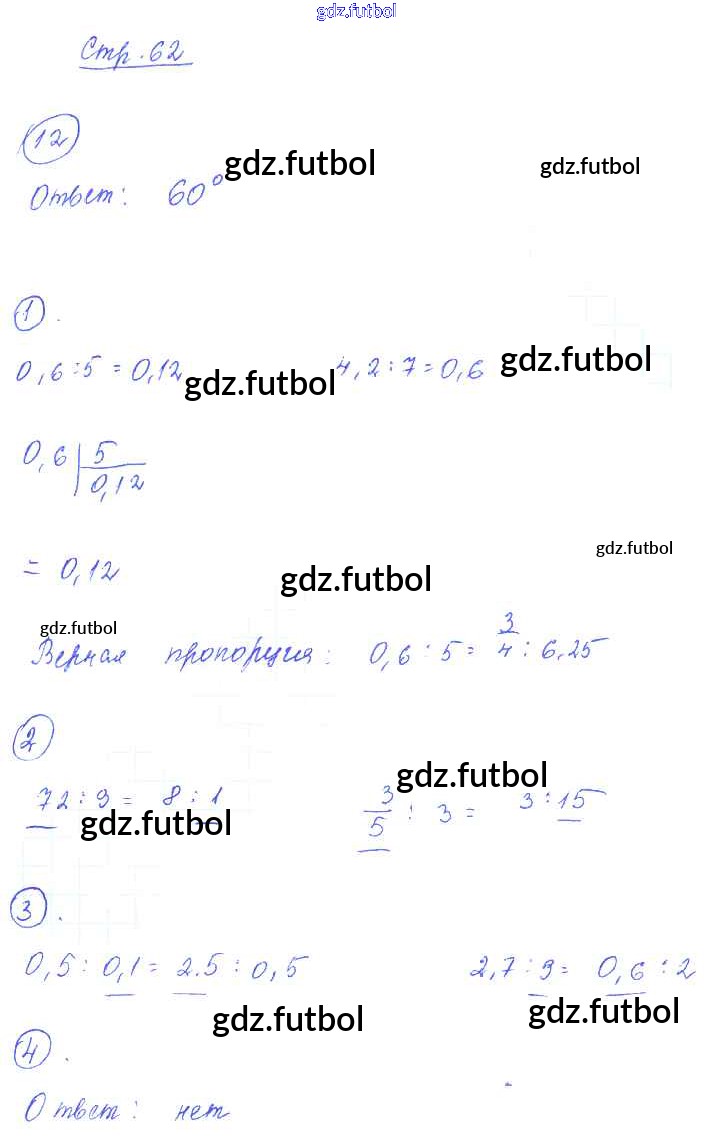 gdz.futbol
Стр. 62
12
gdz.futbol gdz.futbol
Ответ: 60°
1.
0,6 : 5 = 0,12 gdz.futbol 4,2 : 7 = 0,6 gdz.futbol
0,6 | 5
0,12
= 0,12 gdz.futbol gdz.futbol
gdz.futbol
Верная пропорция: 0,6 : 5 = 3/4 : 6,25
2
gdz.futbol
72 : 9 = 8 : 1 3/5 : 3 = 3 : 15
gdz.futbol
3.
0,5 : 0,1 = 2.5 : 0,5 2,7 : 9 = 0,6 : 2
gdz.futbol gdz.futbol
4.
Ответ: нет